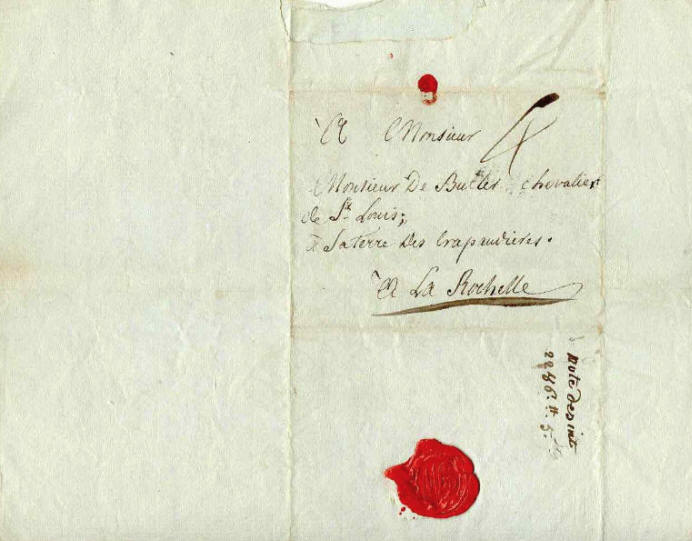 A Monsieur 4
Monsieur De Butler Chevalier
de St Louis;
a Sa terre Des Crapaudieres.
A La Rochelle
note des int
2286.# 5.